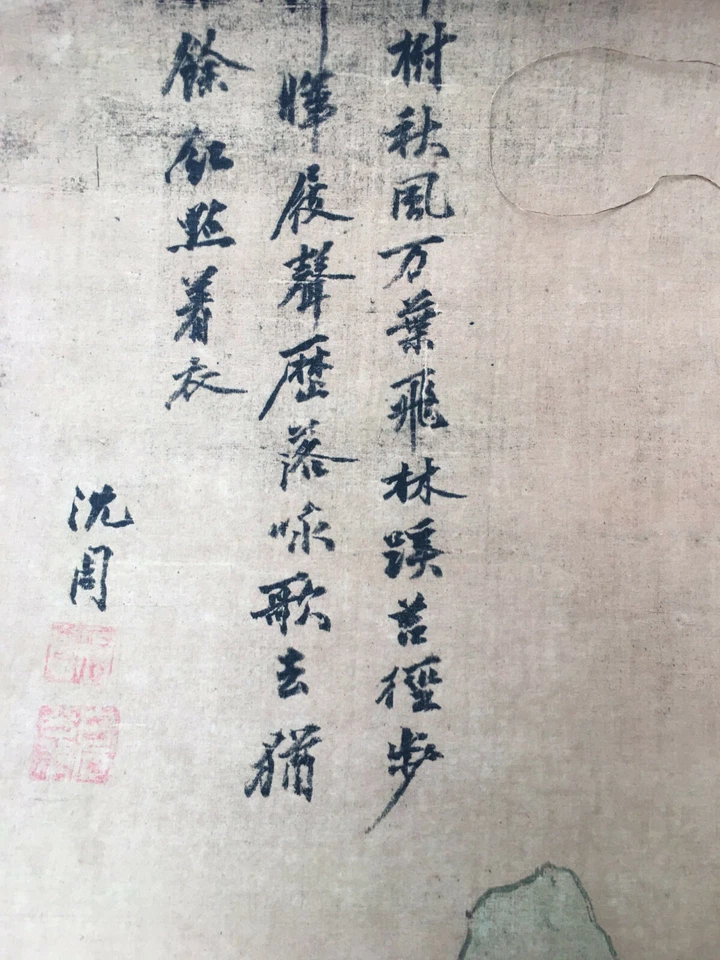 樹秋風万葉飛林蹊苔徑步
暉屐聲歷落咏歌去猶
餘紅點着衣
沈周